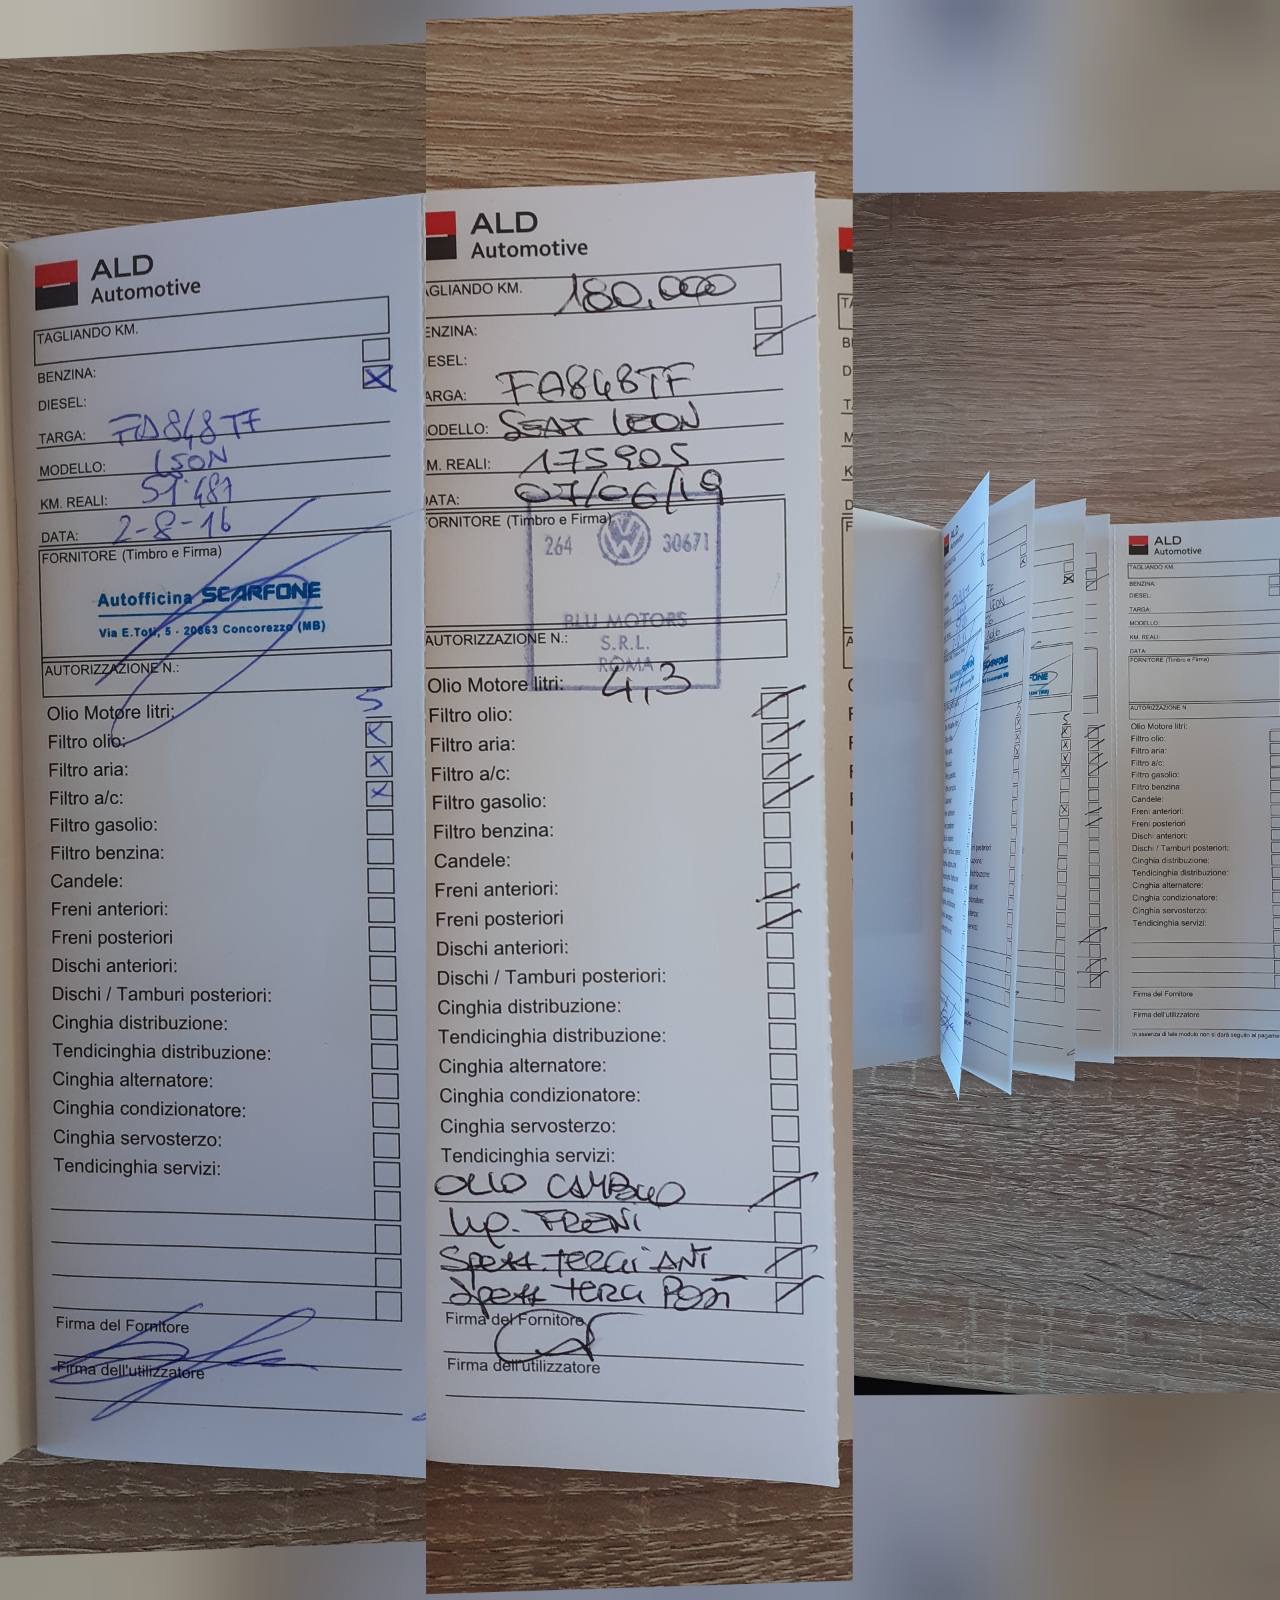 ALD
Automotive
TAGLIANDO KM.
BENZINA:
DIESEL:
TARGA: FA848TF
MODELLO: LEON
KM. REALI: 51.487
DATA: 2-8-16
FORNITORE (Timbro e Firma)
Autofficina SCARFONE
Via E.Toti, 5 - 20863 Concorezzo (MB)
AUTORIZZAZIONE N.:
Olio Motore litri: 5
Filtro olio: X
Filtro aria: X
Filtro a/c: X
Filtro gasolio:
Filtro benzina:
Candele:
Freni anteriori:
Freni posteriori
Dischi anteriori:
Dischi / Tamburi posteriori:
Cinghia distribuzione:
Tendicinghia distribuzione:
Cinghia alternatore:
Cinghia condizionatore:
Cinghia servosterzo:
Tendicinghia servizi:
Firma del Fornitore
Firma dell'utilizzatore
ALD
Automotive
AGLIANDO KM. 180.000
ENZINA:
ESEL:
ARGA: FA848TF
ODELLO: SEAT LEON
M. REALI: 175905
ATA: 07/06/19
ORNITORE (Timbro e Firma)
264 30671
BLU MOTORS
S.R.L.
ROMA
AUTORIZZAZIONE N.:
Olio Motore litri: 4,3
Filtro olio:
Filtro aria:
Filtro a/c:
Filtro gasolio:
Filtro benzina:
Candele:
Freni anteriori:
Freni posteriori
Dischi anteriori:
Dischi / Tamburi posteriori:
Cinghia distribuzione:
Tendicinghia distribuzione:
Cinghia alternatore:
Cinghia condizionatore:
Cinghia servosterzo:
Tendicinghia servizi:
OLIO CAMBIO
LIQ. FRENI
Spazz. TERGI ANT
Spazz TERGI POST
Firma del Fornitore
Firma dell'utilizzatore
ALD
Automotive
TAGLIANDO KM.
BENZINA:
DIESEL:
TARGA:
MODELLO:
KM. REALI:
DATA:
FORNITORE (Timbro e Firma)
AUTORIZZAZIONE N
Olio Motore litri:
Filtro olio:
Filtro aria:
Filtro a/c:
Filtro gasolio:
Filtro benzina
Candele:
Freni anteriori:
Freni posteriori
Dischi anteriori:
Dischi / Tamburi posteriori:
Cinghia distribuzione:
Tendicinghia distribuzione:
Cinghia alternatore:
Cinghia condizionatore:
Cinghia servosterzo:
Tendicinghia servizi:
Firma del Fornitore
Firma dell'utilizzatore
In assenza di tale modulo non si darà seguito al pagame